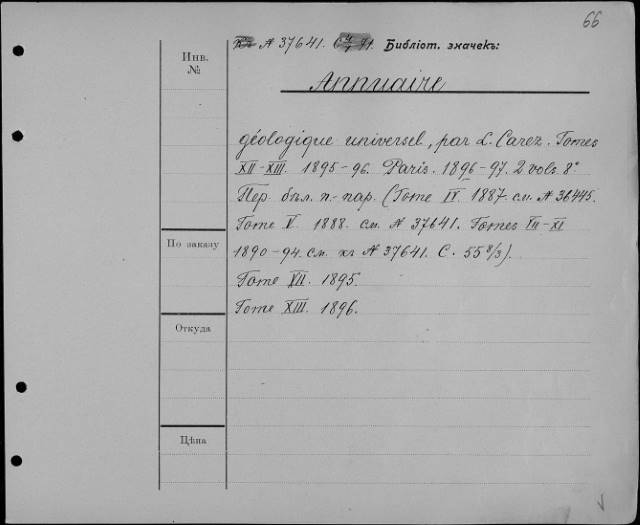 66
A 37641. 71. Библіот. значекъ:
Инв.
№
Annuaire
géologique universel, par L. Carez. Tomes
XII-XIII. 1895-96. Paris. 1896-97. 2 vols. 8°
Пер. бѣл. п.-пар. (Tome IV. 1887. см. А 36445.
Tome V. 1888. см. А 37641. Tomes VII-XI
По заказу
1890-94. см. А 37641. С. 55 8/3).
Tome XII. 1895.
Tome XIII. 1896.
Откуда
Цѣна